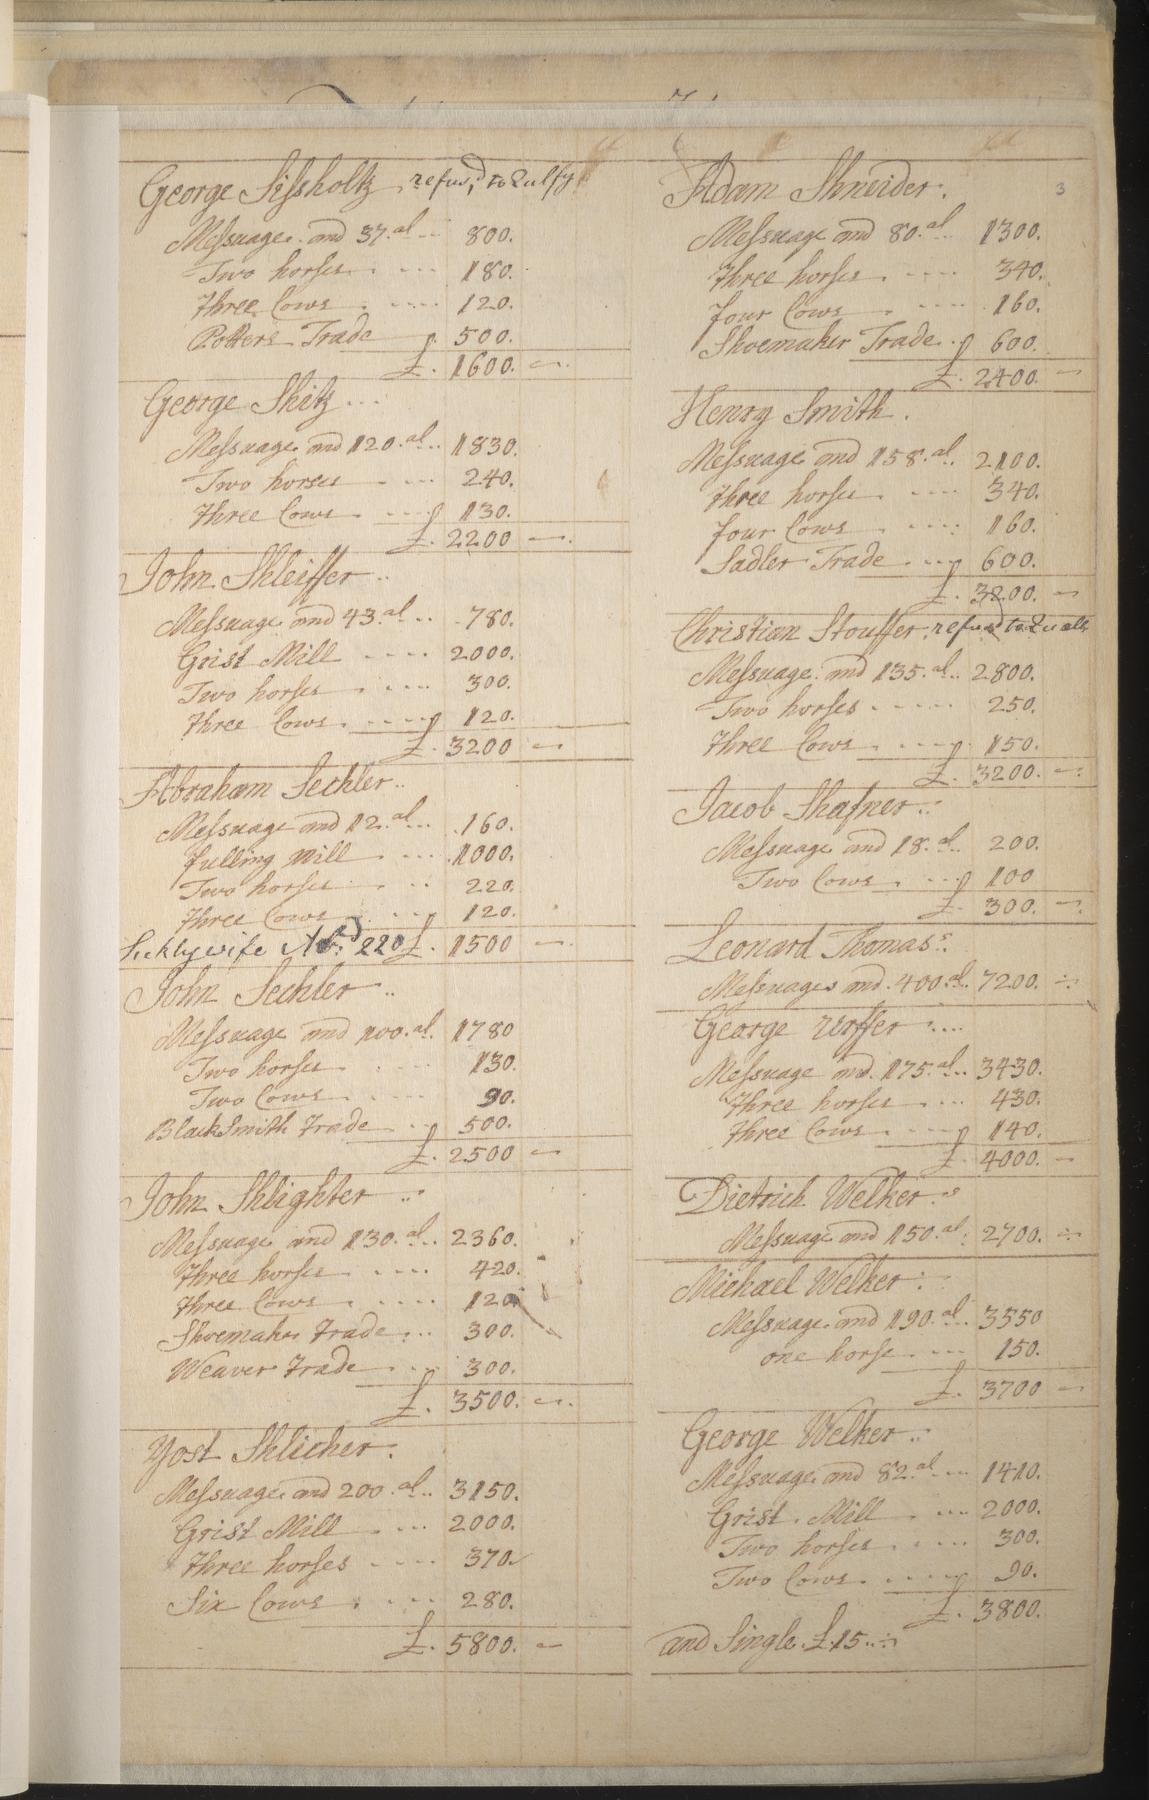 George Sissholtz refus'd to Qulfy
Messuage and 37 al 800.
Two horses 180.
Three Cows 120.
Potters Trade 500.
£. 1600.
George Shitz
Messuage and 120 al 1830.
Two horses 240.
Three Cows 130.
£. 2200
John Shleiffer
Messuage and 43 al 780.
Grist Mill 2000.
Two horses 300.
Three Cows 120.
£. 3200
Abraham Sechler
Messuage and 12 al 160.
fulling Mill 1000.
Two horses 220.
Three Cows 120.
Sickly wife Abd 220 £. 1500
John Sechler
Messuage and 100 al. 1780
Two horses 130.
Two Cows 90.
BlackSmith Trade 500.
£. 2500
John Shlighter
Messuage and 130 al 2360.
Three horses 420.
Three Cows 120
Shoemaker Trade 300.
Weaver Trade 300.
£. 3500.
Yost Shlicher.
Messuage and 200 al 3150.
Grist Mill 2000.
Three horses 370.
Six Cows 280.
£. 5800.
3
Adam Shneider.
Messuage and 80 al 1300.
Three horses 340.
four Cows 160.
Shoemaker Trade 600.
£. 2400.
Henry Smith.
Messuage and 158 al. 2100.
Three horses 340.
four Cows 160.
Sadler Trade 600.
£. 3200.
Christian Stouffer refusd to Qualf
Messuage and 135 al 2800.
Two horses 250.
Three Cows 150.
£. 3200.
Jacob Shafner
Messuage and 18 al. 200.
Two Cows 100
£. 300.
Leonard Thomas
Messuages and 400 al. 7200.
George
Messuage and 175 al 3430.
Three horses 430.
Three Cows 140.
£. 4000.
Dietrich Welker
Messuage and 150 al 2700.
Michael Welker
Messuage and 190 al. 3550
one horse 150.
£. 3700
George Welker
Messuage and 82 al 1410.
Grist Mill 2000.
Two horses 300.
Two Cows 90.
£. 3800.
and Single £15